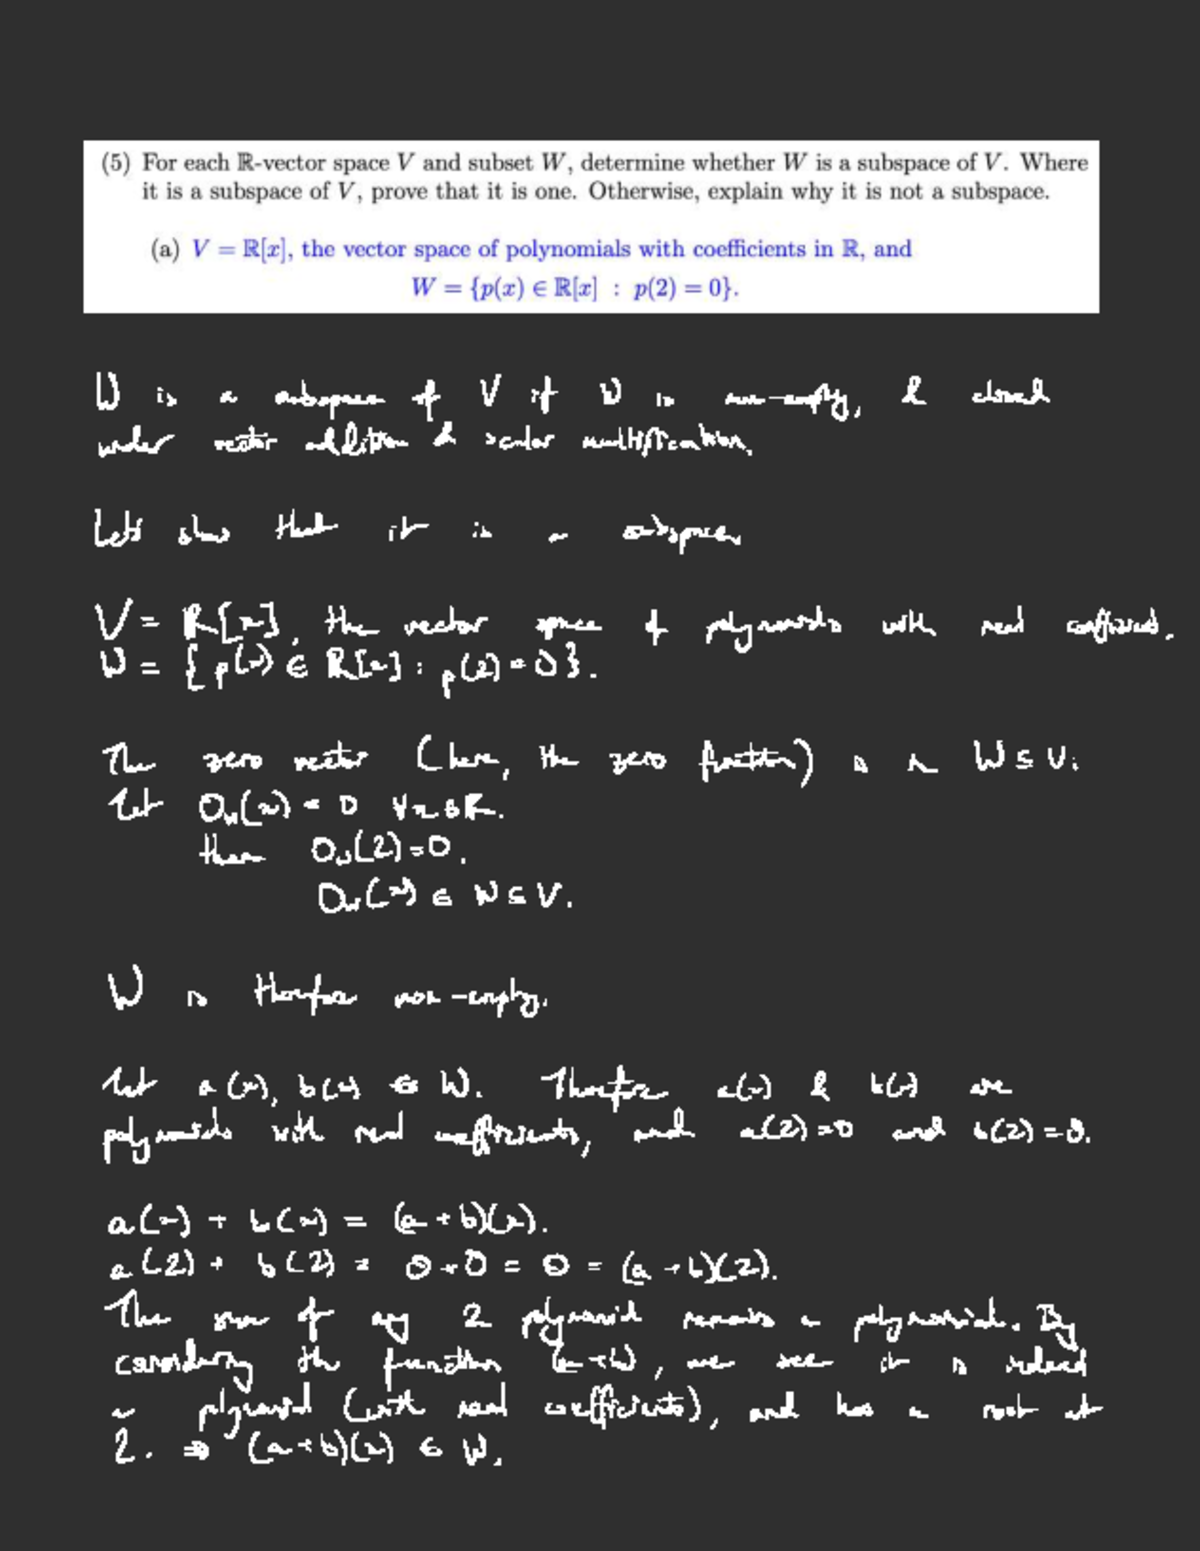 (5) For each ℝ-vector space V and subset W, determine whether W is a subspace of V. Where
it is a subspace of V, prove that it is one. Otherwise, explain why it is not a subspace.
(a) V = ℝ[x], the vector space of polynomials with coefficients in ℝ, and
W = {p(x) ∈ ℝ[x] : p(2) = 0}.
W is a subspace of V if W is non-empty, & closed
under vector addition & scalar multiplication.
Lets show that it is a subspace.
V = R[x], the vector space of polynomials with real coefficients.
W = {p(x) ∈ R[x] : p(2) = 0}.
The zero vector (here, the zero function) is in W ⊆ V.
Let 0ᵥ(x) = 0 ∀x∈R.
then 0ᵥ(2)=0.
0ᵥ(x) ∈ W ⊆ V.
W is therefore non-empty.
Let a(x), b(x) ∈ W. Therefore a(x) & b(x) are
polynomials with real coefficients, and a(2)=0 and b(2)=0.
a(x) + b(x) = (a+b)(x).
a(2) + b(2) = 0+0 = 0 = (a+b)(2).
The sum of any 2 polynomial remains a polynomial. By
considering the function (a+b), we see it is indeed
a polynomial (with real coefficients), and has a root at
2. ⇒ (a+b)(x) ∈ W.